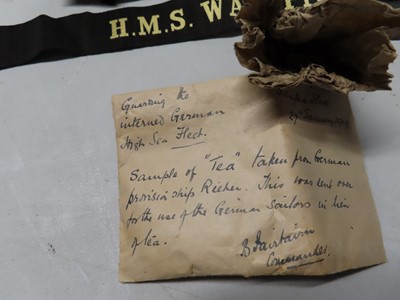 H.M.S. WA
Guarding the
interned German
High Sea Fleet.
Sample of "Tea" taken from German
provision ships Reiher. This was sent over
for the use of the German Sailors in lieu
of tea.
B Fairbairn
Commander.